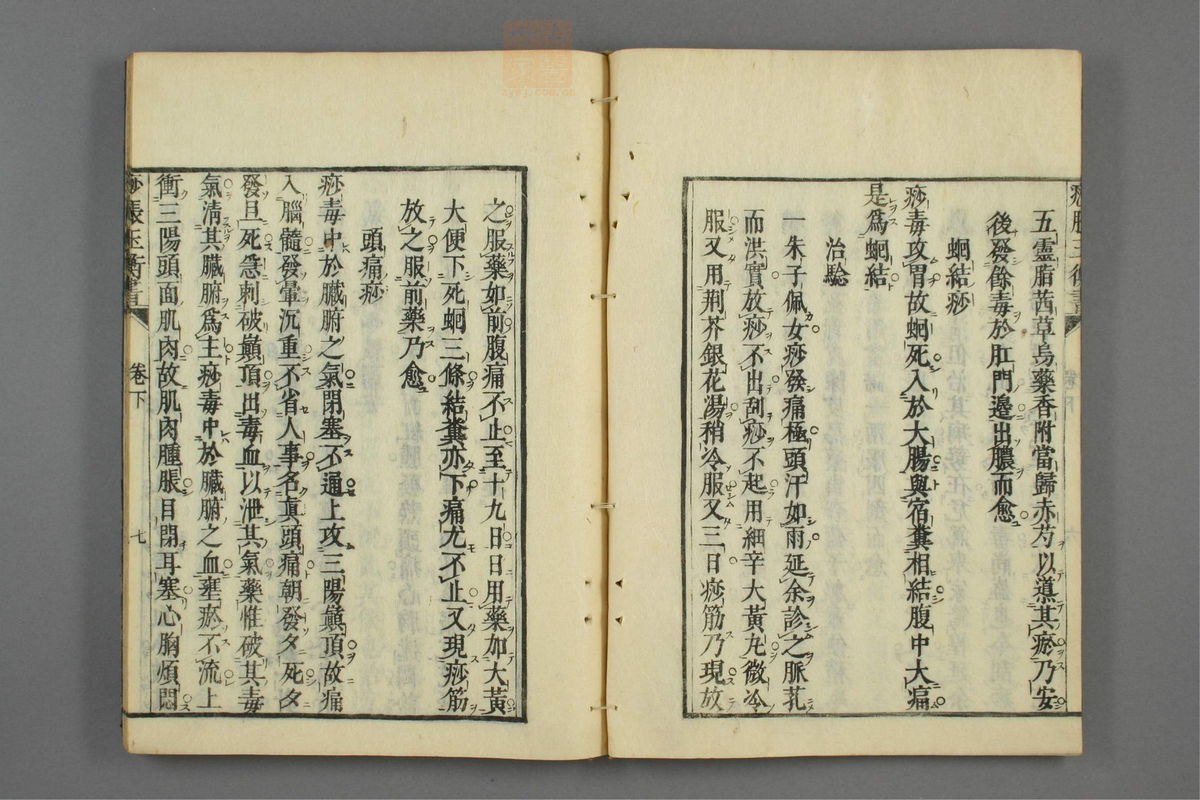 五靈脂茜草烏藥香附當歸赤芍以導其瘀乃安
後發餘毒於肛門邊出膿而愈
蛔結痧
痧毒攻胃故蛔死入於大腸與宿糞相結腹中大痛
是爲蛔結
治驗
一朱子佩女痧發痛極頭汗如雨延余診之脈芤
而洪實放痧不出刮痧不起用細辛大黃丸微冷
服又用荆芥銀花湯稍冷服又三日痧筋乃現放
之服藥如前腹痛不止至十九日日用藥加大黃
大便下死蛔三條結糞亦下痛尤不止又現痧筋
放之服前藥乃愈
頭痛痧
痧毒中於臟腑之氣閉塞不通上攻三陽巔頂故痛
入腦髓發暈沉重不省人事名眞頭痛朝發夕死夕
發旦死急刺破巔頂出毒血以泄其氣藥惟破其毒
氣清其臟腑爲主痧毒中於臟腑之血壅瘀不流上
衝三陽頭面肌肉故肌肉腫脹目閉耳塞心胸煩悶
痧脹玉衡書
卷下
七